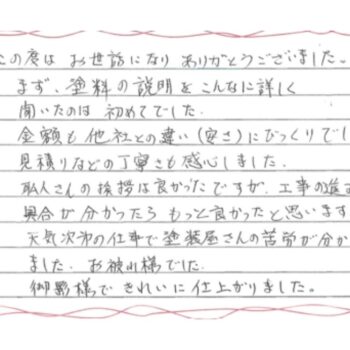 の度は お世話になり ありがとうございました。
まず、塗料の説明をこんなに詳しく
聞いたのは 初めてでした.
金額も他社との違い(安さ)にびっくりでし
見積りなどの丁寧さも感心しました.
職人さんの挨拶は良かったですが、工事の進す
具合が分かったら もっと良かったと思います
天気次第の仕事で塗装屋さんの苦労が分か
ました. お疲れ様でした.
御影様で きれいに仕上がりました。